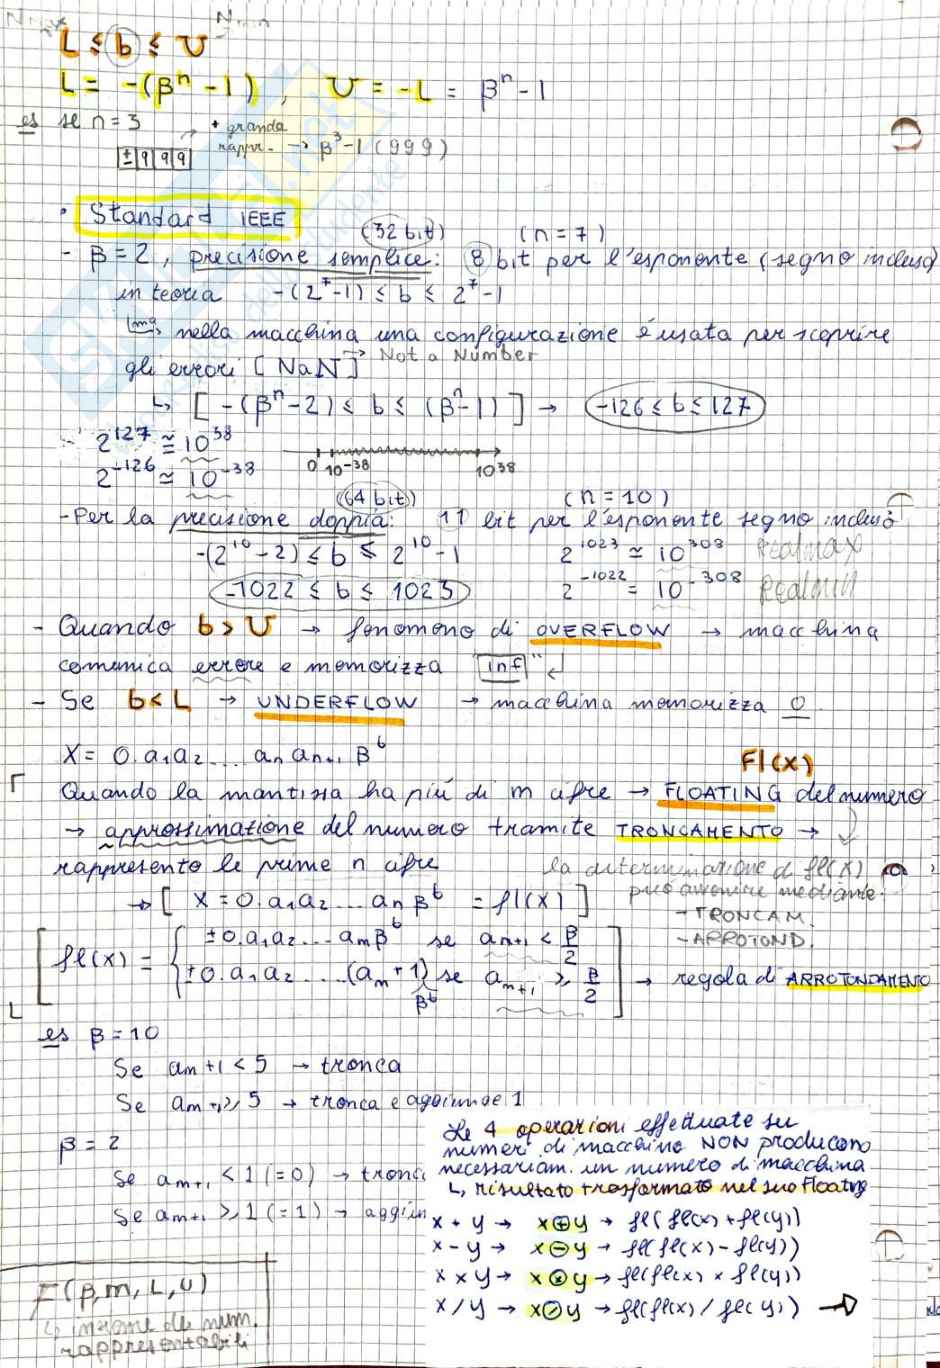 L ≤ b ≤ U
L = -(βⁿ - 1) , U = -L = βⁿ - 1
es se n = 3 + grande
rappr. → β³-1 (999)
± 9 9 9
• Standard IEEE
(32 bit) (n = 7)
- β = 2, precisione semplice: 8 bit per l'esponente (segno incluso)
in teoria -(2⁷-1) ≤ b ≤ 2⁷-1
↳ nella macchina una configurazione è usata per scoprire
gli errori [NaN] → Not a Number
↳ [ -(βⁿ-2) ≤ b ≤ (βⁿ-1) ] → -126 ≤ b ≤ 127
2¹²⁷ ≅ 10³⁸
2⁻¹²⁶ ≅ 10⁻³⁸
0 10⁻³⁸ 10³⁸
(64 bit) (n = 10)
- Per la precisione doppia: 11 bit per l'esponente segno incluso
-(2¹⁰-2) ≤ b ≤ 2¹⁰-1 2¹⁰²³ ≅ 10³⁰⁸ Realmax
-1022 ≤ b ≤ 1023 2⁻¹⁰²² = 10⁻³⁰⁸ Realmin
- Quando b > U → fenomeno di OVERFLOW → macchina
comunica errore e memorizza "inf"
- Se b < L → UNDERFLOW → macchina memorizza 0.
X = 0.a₁a₂....aₙaₙ₊₁ βᵇ
Fl(x)
Quando la mantissa ha più di m cifre → FLOATING del numero
→ approssimazione del numero tramite TRONCAMENTO →
rappresento le prime n cifre
la determinazione di fl(x)
può avvenire mediante:
- TRONCAM.
- ARROTOND.
→ [ X = 0.a₁a₂....aₙβᵇ = fl(x) ]
fl(x) = { ±0.a₁a₂....aₘβᵇ se aₘ₊₁ < β/2
±0.a₁a₂....(aₘ+1)βᵇ se aₘ₊₁ ≥ β/2 → regola di ARROTONDAMENTO
es β = 10
Se aₘ₊₁ < 5 → tronca
Se aₘ₊₁ ≥ 5 → tronca e aggiunge 1
β = 2
Se aₘ₊₁ < 1 (=0) → tronc
Se aₘ₊₁ ≥ 1 (=1) → aggiun
Le 4 operazioni effettuate su
numeri di macchina NON producono
necessariam. un numero di macchina
↳ risultato trasformato nel suo Floating
x + y → x⊕y → fl(fl(x) + fl(y))
x - y → x⊖y → fl(fl(x) - fl(y))
x × y → x⊗y → fl(fl(x) × fl(y))
x / y → x⊘y → fl(fl(x) / fl(y)) →
F(β,m,L,U)
↳ insieme dei num.
rappresentabili